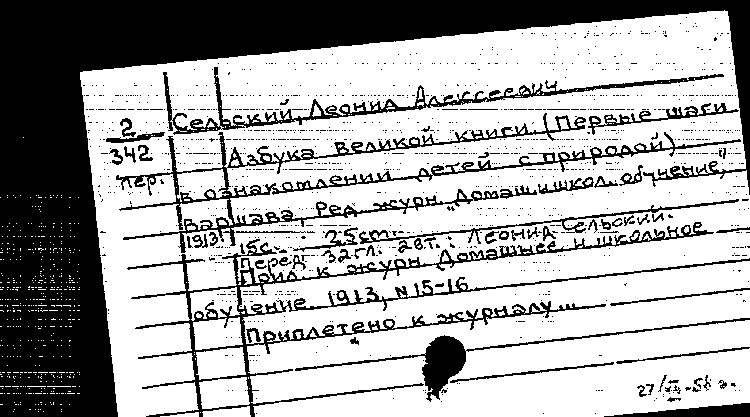 Сельский, Леонид Алексеевич
2
342
пер.
Азбука великой книги. (Первые шаги
в ознакомлении детей с природой)
Варшава, Ред. журн. "Домаш. и школ. обучение",
1913.
15с. 25cm.
Перед загл. авт.: Леонид Сельский.
Прил. к журн. Домашнее и школьное
обучение. 1913, N 15-16.
Приплетено к журналу...
27/XII-58 г.